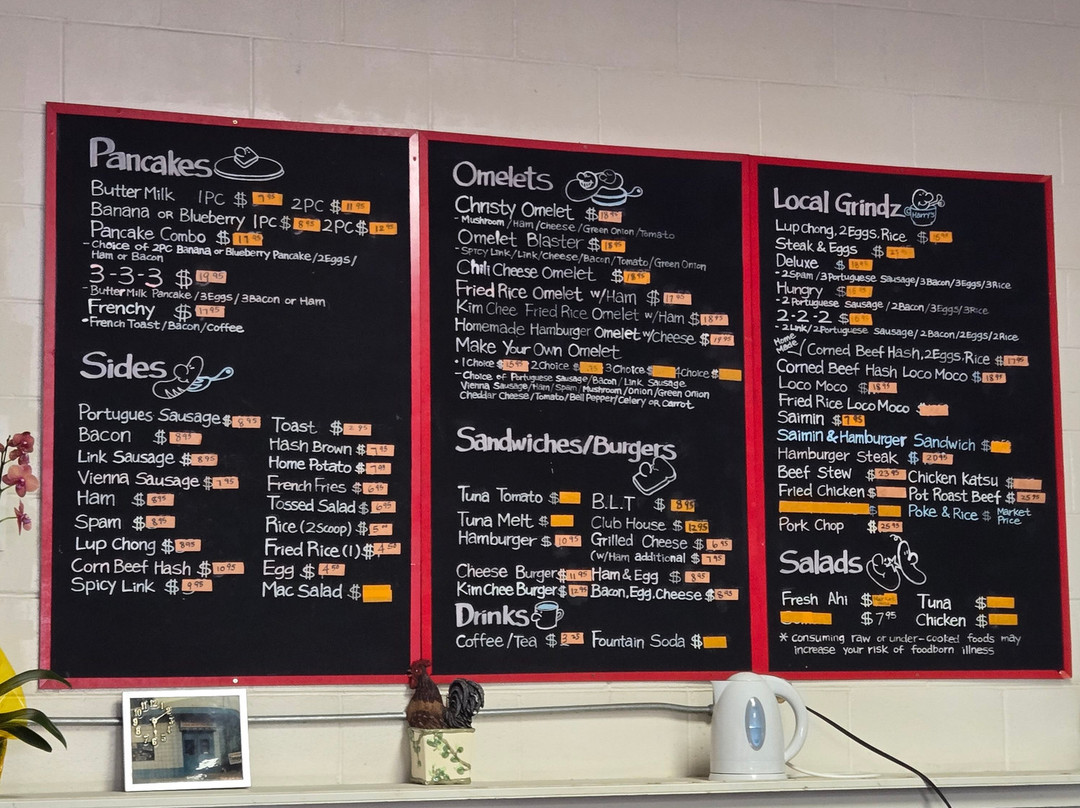 Pancakes
Butter Milk 1PC $ 7.95 2PC $ 11.95
Banana OR Blueberry 1PC $ 8.95 2PC $ 12.95
Pancake Combo $ 19.95
-Choice of 2PC Banana or Blueberry Pancake/2Eggs/
Ham or Bacon
3-3-3 $ 19.95
-Butter Milk Pancake/3Eggs/3Bacon or Ham
Frenchy $ 17.95
*French Toast/Bacon/Coffee
Sides
Portugues Sausage $ 8.95
Bacon $ 8.95
Link Sausage $ 8.95
Vienna Sausage $ 7.95
Ham $ 8.95
Spam $ 8.95
Lup Chong $ 8.95
Corn Beef Hash $ 10.95
Spicy Link $ 9.95
Toast $ 2.95
Hash Brown $
Home Potato $
French Fries $ 6.95
Tossed Salad $ 6.95
Rice (2 Scoop) $
Fried Rice (1) $
Egg $
Mac Salad $
Omelets
Christy Omelet $ 18.95
-Mushroom/Ham/Cheese/Green Onion/Tomato
Omelet Blaster $ 18.95
-Spicy Link/Link/Cheese/Bacon/Tomato/Green Onion
Chili Cheese Omelet $ 18.95
Fried Rice Omelet w/Ham $ 17.95
Kim Chee Fried Rice Omelet w/Ham $ 18.95
Homemade Hamburger Omelet w/Cheese $ 19.95
Make Your Own Omelet
*1Choice $ 2Choice $ 3Choice $ 4Choice $
-Choice of Portuguese Sausage/Bacon/Link Sausage
Vienna Sausage/Ham/Spam/Mushroom/Onion/Green Onion
Cheddar Cheese/Tomato/Bell Pepper/Celery or Carrot
Sandwiches/Burgers
Tuna Tomato $
Tuna Melt $
Hamburger $ 10.95
Cheese Burger $ 11.95
Kim Chee Burger $ 12.95
B.L.T $ 8.95
Club House $ 12.95
Grilled Cheese $ 6.95
(w/Ham additional $ 7.95
Ham & Egg $ 8.95
Bacon, Egg, Cheese $ 8.95
Drinks
Coffee/Tea $
Fountain Soda $
Local Grindz
Harry's
Lup chong, 2Eggs, Rice $
Steak & Eggs $
Deluxe $
-2Spam/3Portuguese Sausage/3Bacon/3Eggs/3Rice
Hungry $
-2 Portuguese Sausage/2Bacon/3Eggs/3Rice
2-2-2 $
-2Link/2Portuguese Sausage/2Bacon/2Eggs/2Rice
Home Made Corned Beef Hash, 2Eggs, Rice $ 17.95
Corned Beef Hash Loco Moco $ 18.95
Loco Moco $ 18.95
Fried Rice Loco Moco $
Saimin $ 7.95
Saimin & Hamburger Sandwich $
Hamburger Steak $ 20.95
Beef Stew $ 23.95 Chicken Katsu $
Fried Chicken $ Pot Roast Beef $ 25.95
$ Poke & Rice $ Market Price
Pork Chop $ 25.95
Salads
Fresh Ahi $ Market
$ 7.95
Tuna $
Chicken $
* consuming raw or under-cooked foods may
increase your risk of foodborn illness